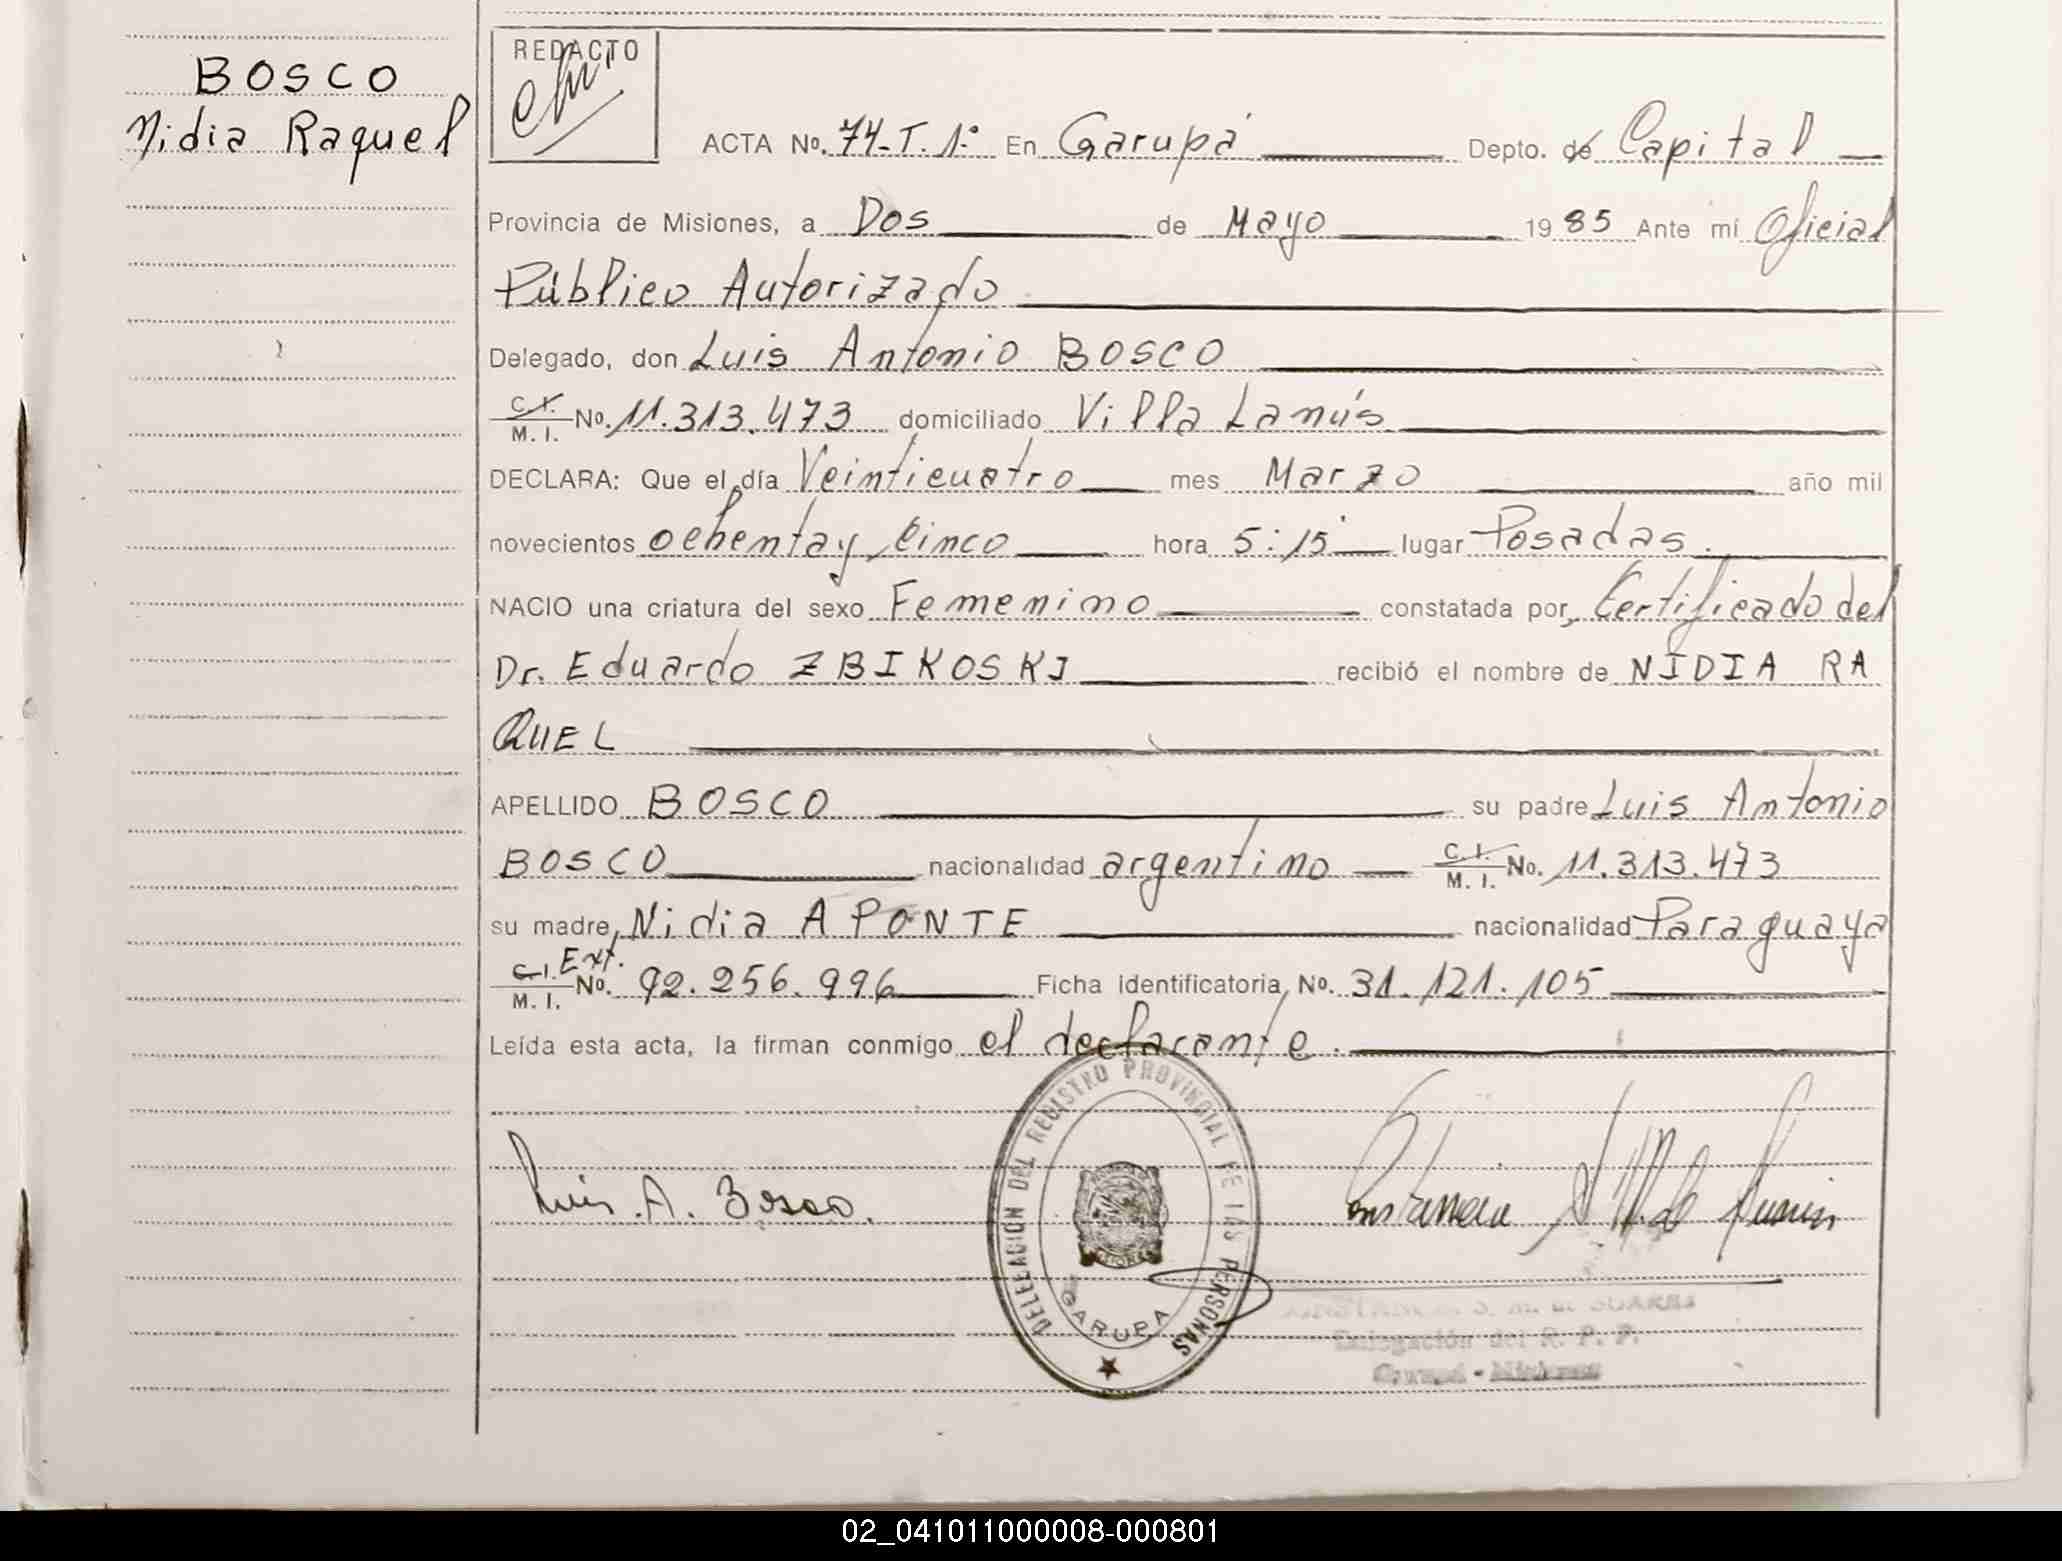 BOSCO
Nidia Raquel
REDACTO
ACTA No. 74-T. 1º En Garupá Depto. de Capital
Provincia de Misiones, a Dos de Mayo 1985 Ante mí Oficial
Público Autorizado
Delegado, don Luis Antonio BOSCO
C. I. / M. I. No. 11.313.473 domiciliado Villa Lanús
DECLARA: Que el día Veinticuatro mes Marzo año mil
novecientos ochenta y cinco hora 5:15 lugar Posadas.
NACIO una criatura del sexo Femenino constatada por, Certificado del
Dr. Eduardo ZBIKOSKI recibió el nombre de NIDIA RA
QUEL
APELLIDO BOSCO su padre Luis Antonio
BOSCO nacionalidad argentino C. I. / M. I. No. 11.313.473
su madre, Nidia APONTE nacionalidad Paraguaya
C. I. Ext. / M. I. No. 92.256.996 Ficha identificatoria, No. 31.121.105
Leída esta acta, la firman conmigo el declarante.
Luis. A. Bosco.
DELEGACION DEL REGISTRO PROVINCIAL DE LAS PERSONAS
GARUPA
Delegación del R. P. P.
Garupá - Misiones
02_041011000008-000801